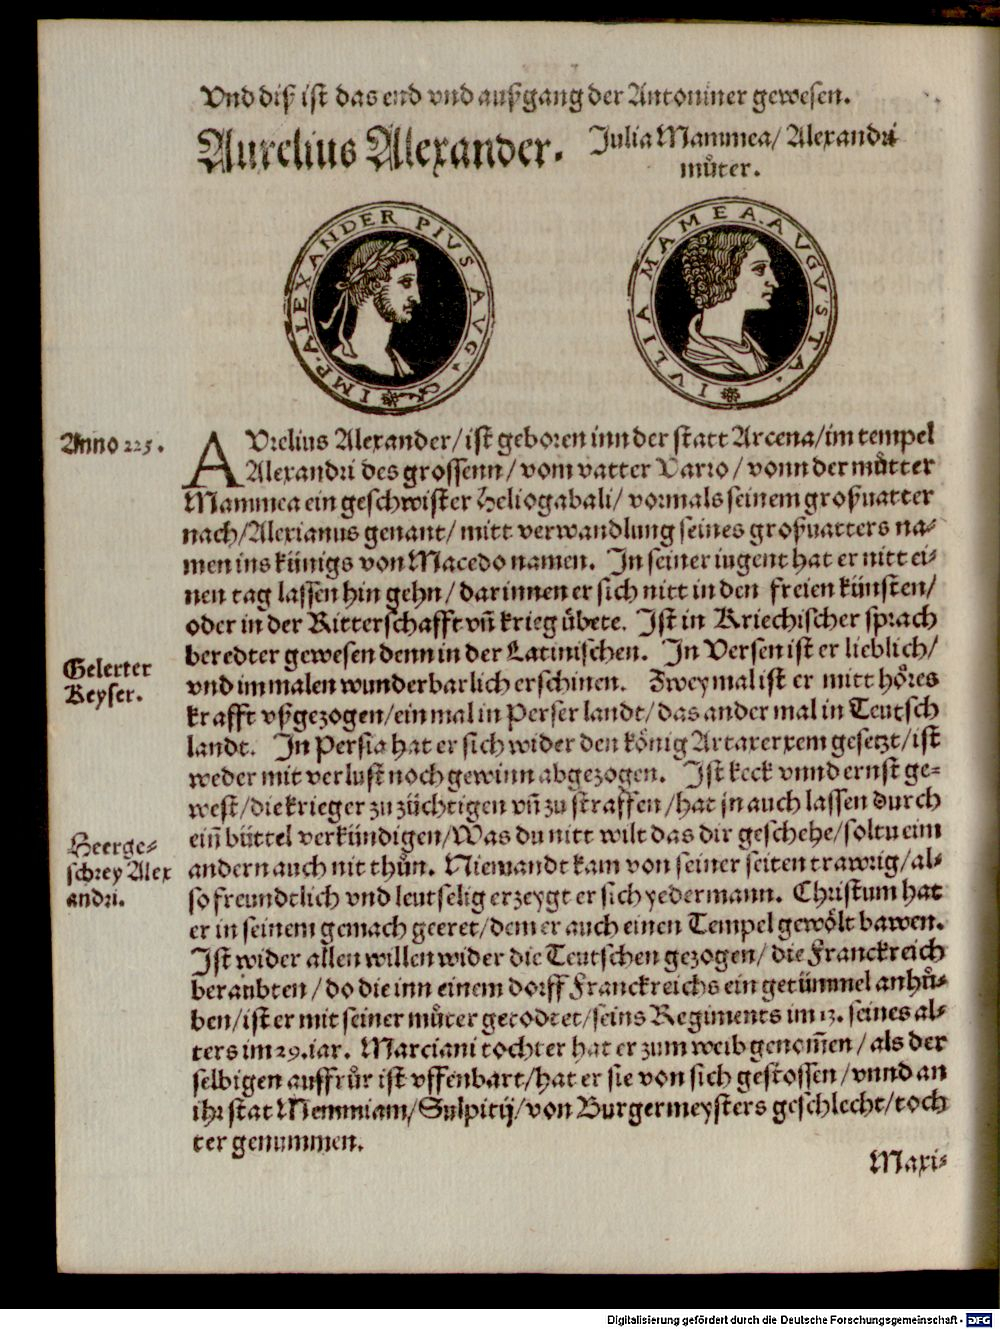 Vnd diß ist das end vnd außgang der Antoniner gewesen.
Aurelius Alexander.
Julia Mammea/ Alexandri
můter.
IMP. ALEXANDER PIVS AVG.
IVLIA MAMEA. AVGVSTA.
Anno 225.
AVrelius Alexander/ ist geboren inn der statt Arcena/ im tempel
Alexandri des grossenn/ vom vatter Vario/ vonn der můtter
Mammea ein geschwister Heliogabali/ vormals seinem großuatter
nach/ Alexianus genant/ mitt verwandlung seines großuatters na-
men ins künigs von Macedo namen. In seiner iugent hat er nitt ei-
nen tag lassen hin gehn/ darinnen er sich nitt in den freien künsten/
oder in der Ritterschafft vn̄ krieg ůbete. Ist in Kriechischer sprach
beredter gewesen denn in der Latinischen. In Versen ist er lieblich/
Gelerter
Keyser.
vnd im malen wunderbarlich erschinen. Zwey mal ist er mitt hőres
krafft vßgezogen/ ein mal in Perser landt/ das ander mal in Teutsch
landt. In Persia hat er sich wider den kőnig Artaxerxem gesetzt/ ist
weder mit verlust noch gewinn abgezogen. Ist keck vnnd ernst ge-
west/ die krieger zu züchtigen vn̄ zu straffen/ hat jn auch lassen durch
ein̄ büttel verkündigen/ Was du nitt wilt das dir geschehe/ soltu eim
Heerge-
schrey Alex
andri.
andern auch nit thůn. Niemandt kam von seiner seiten trawrig/ al-
so freundtlich vnd leutselig erzeygt er sich yederman̄. Christum hat
er in seinem gemach geeret/ dem er auch einen Tempel gewőlt bawen.
Ist wider allen willen wider die Teutschen gezogen/ die Franckreich
beraubten/ do die inn einem dorff Franckreichs ein getümmel anhů-
ben/ ist er mit seiner můter getodtet/ seins Regiments im 13. seines al-
ters im 29. iar. Marciani tochter hat er zum weib genom̄en/ als der
selbigen auffrůr ist vffenbart/ hat er sie von sich gestossen/ vnnd an
ihr stat Memmiam/ Sulpitij/ von Burgermeysters geschlecht/ toch
ter genummen.
Maxi-
Digitalisierung gefördert durch die Deutsche Forschungsgemeinschaft - DFG